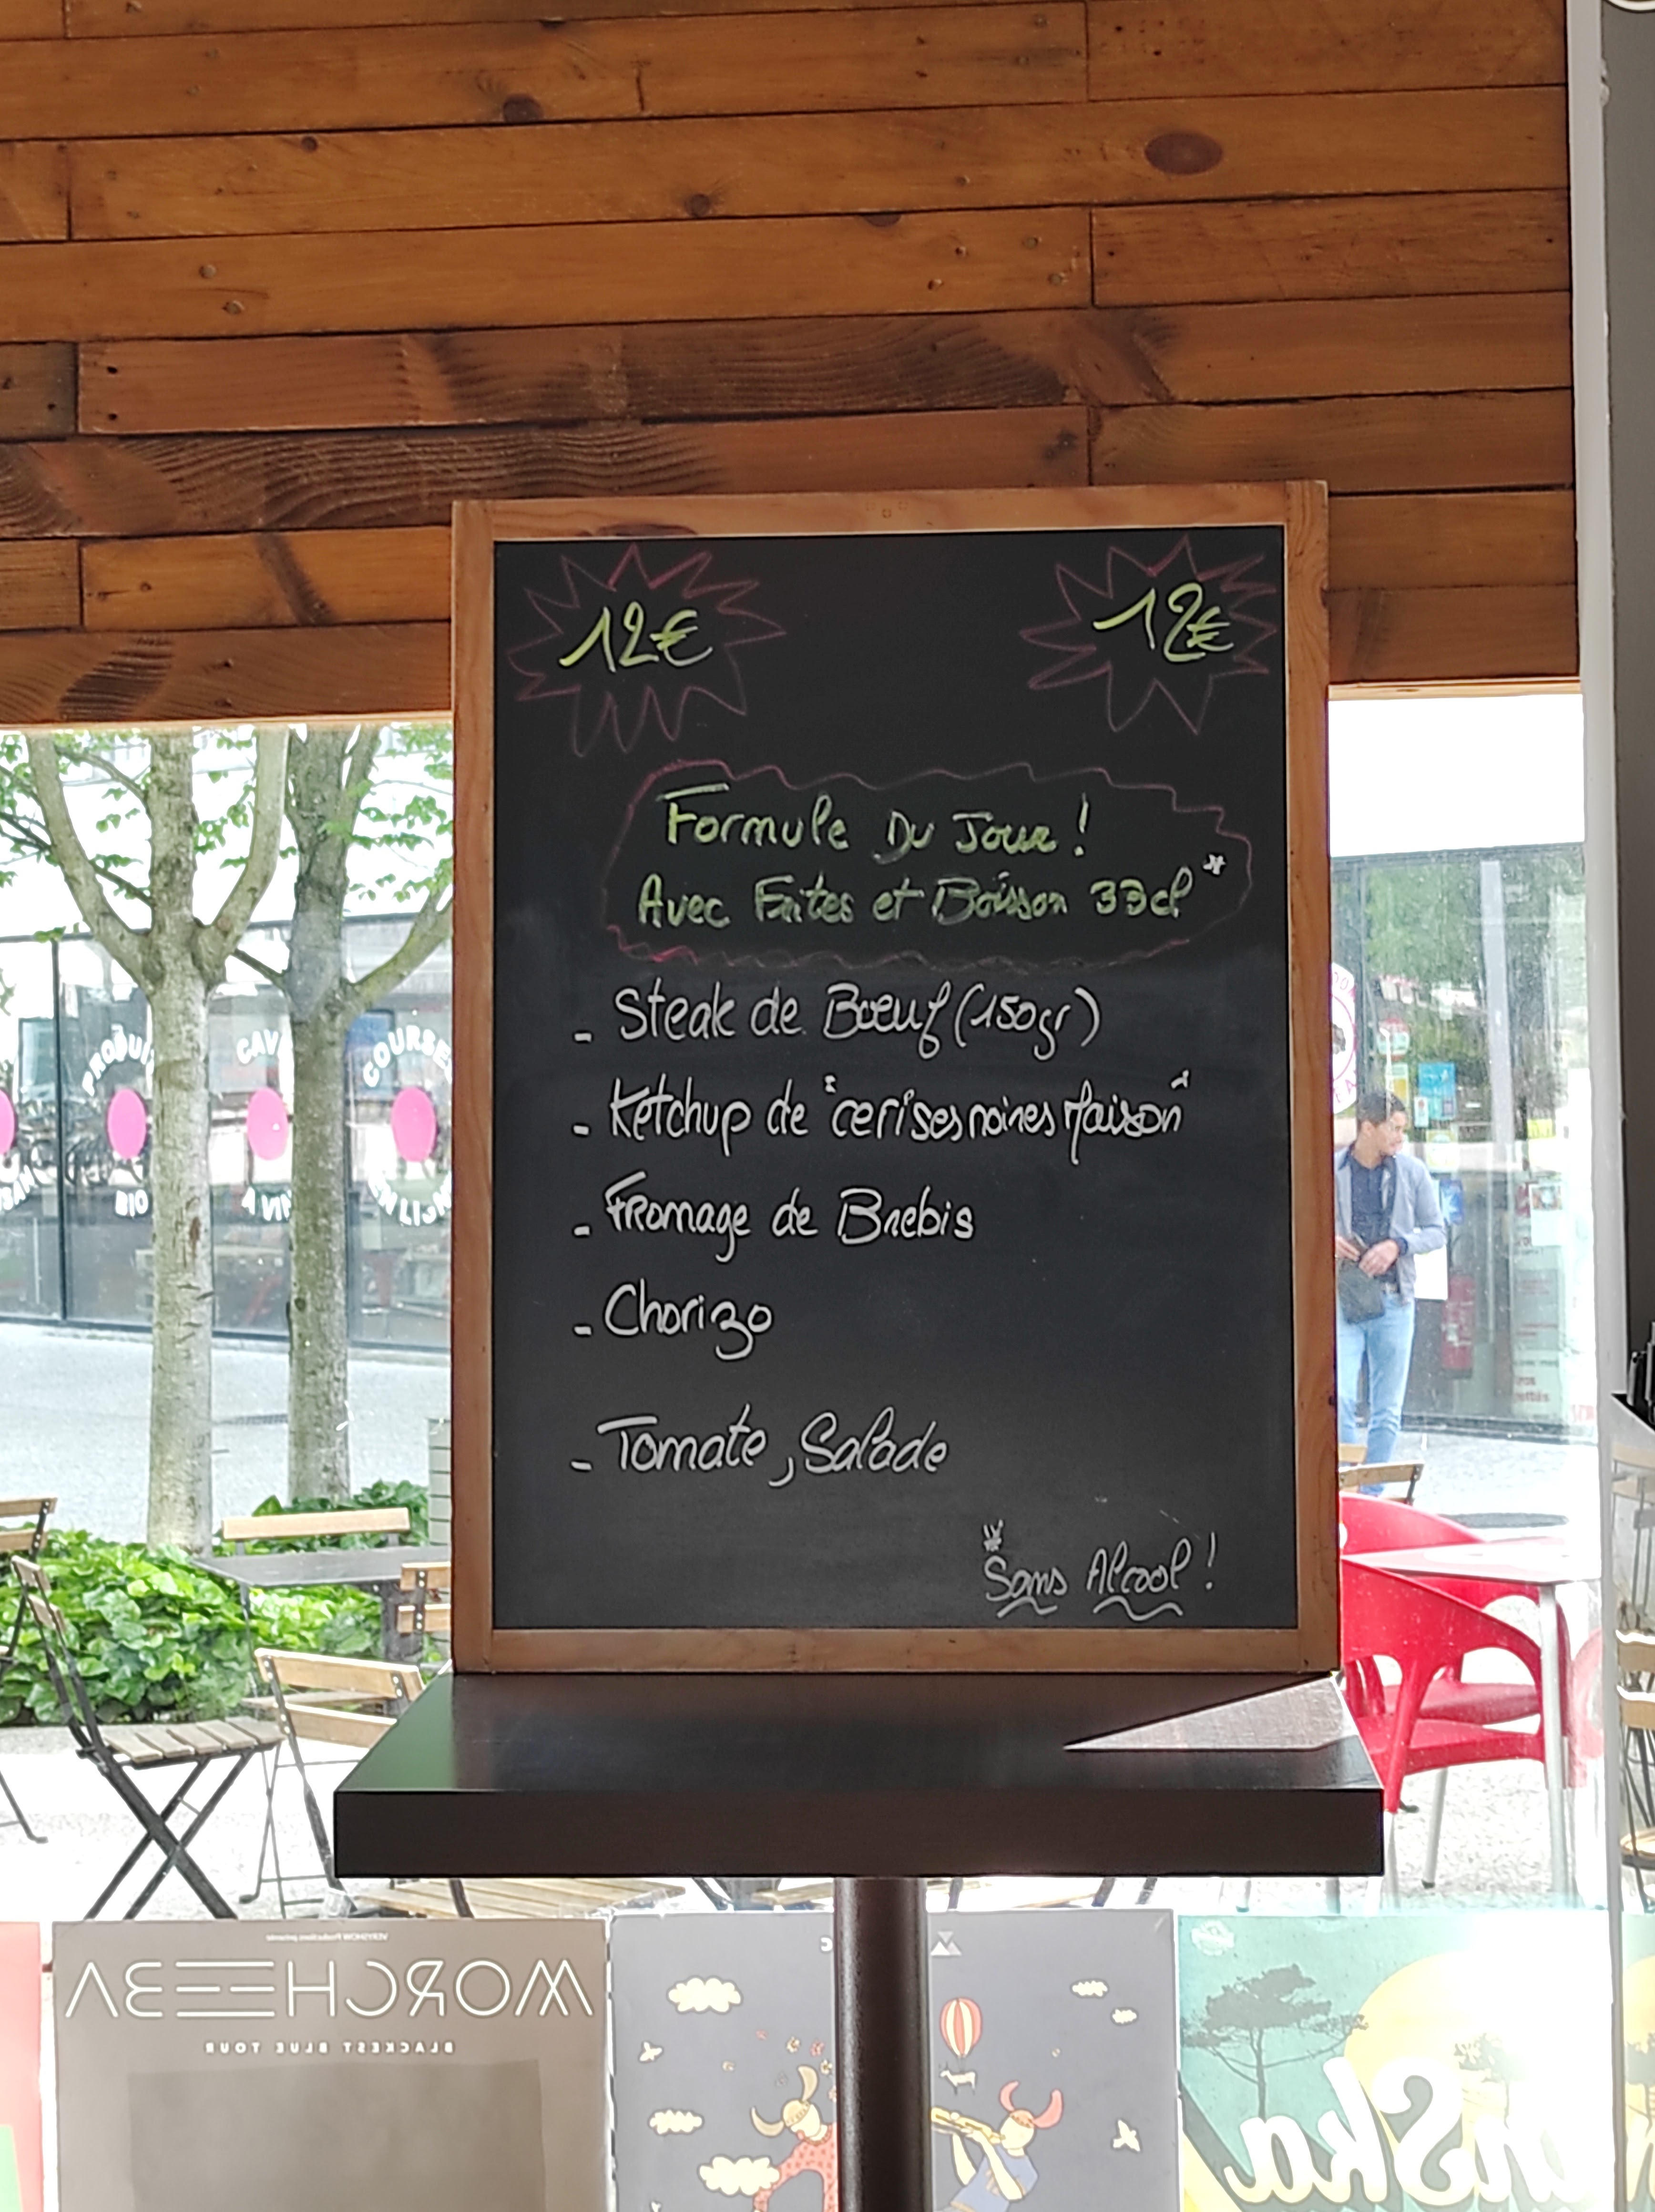 12€
12€
Formule Du Jour !
Avec Frites et Boisson 33cl *
- Steak de Bœuf (150gr)
- Ketchup de "cerises noires Maison"
- Fromage de Brebis
- Chorizo
- Tomate, Salade
* Sans Alcool !
PRODUI
CAV
COURSE
VERYSHOW Productions présente
MORCHEEBA
BLACKEST BLUE TOUR